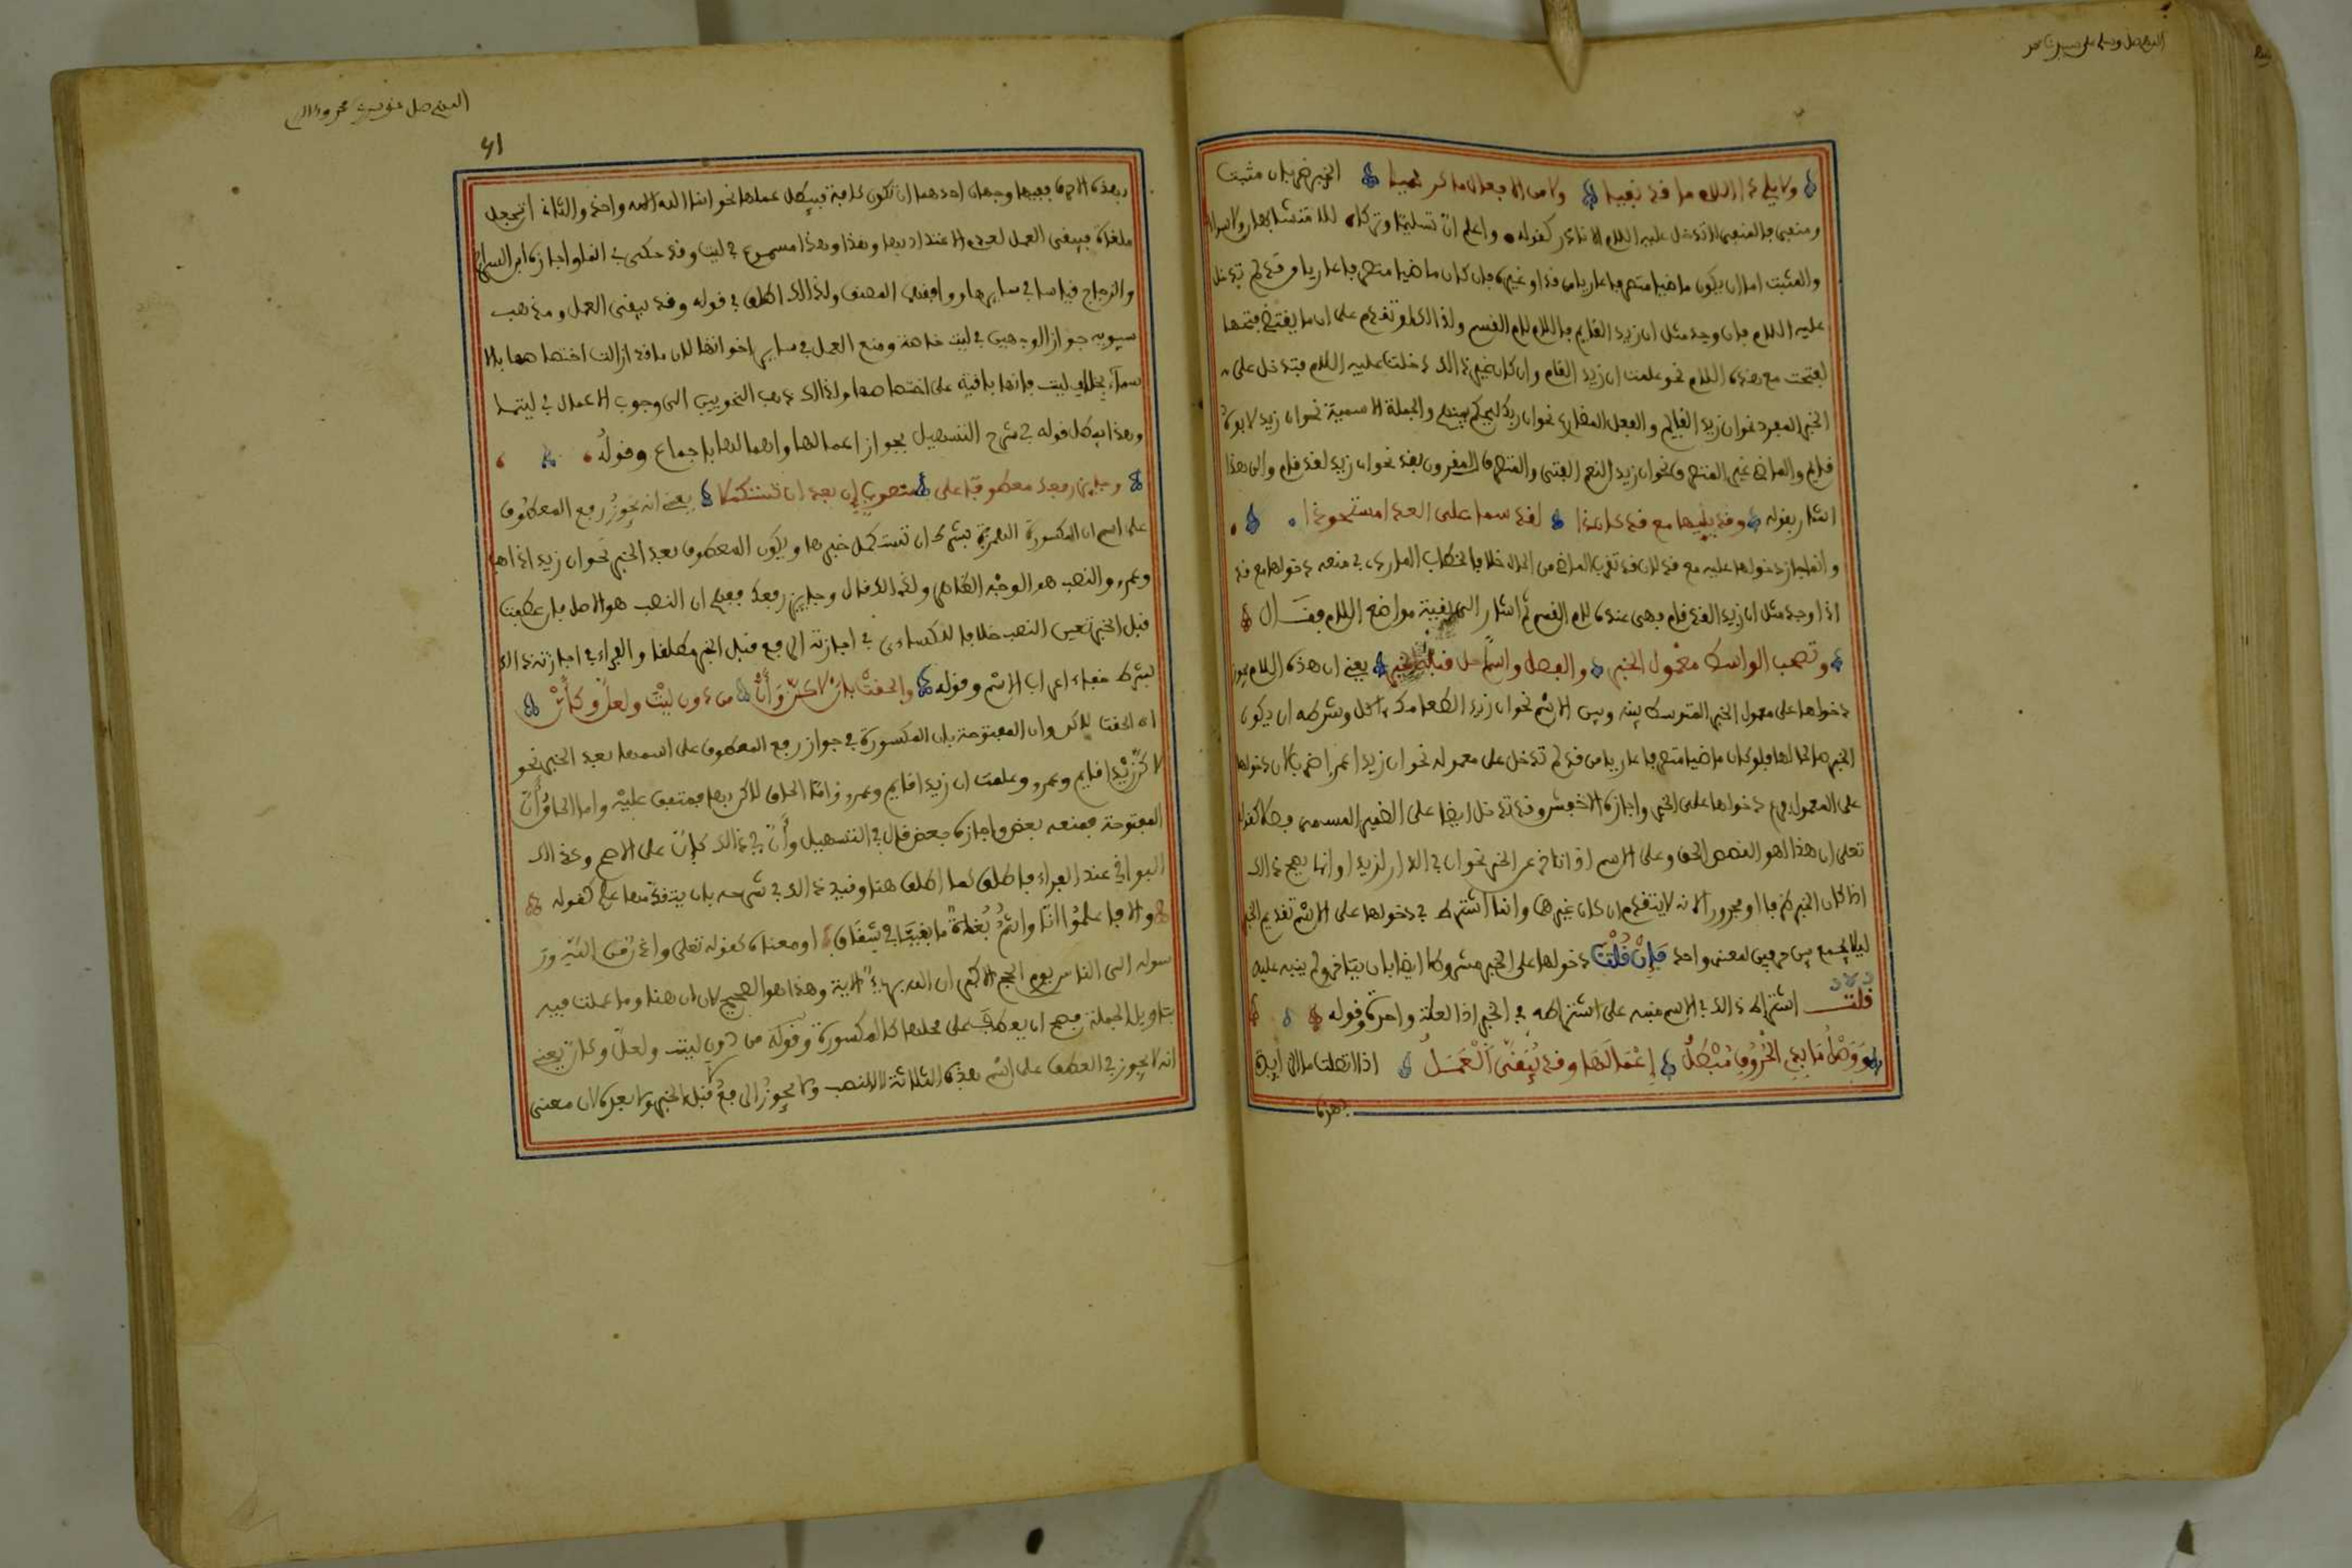 اللهم صل وسلم على سيدنا محمد
ولا يلي ذي اللام ما قد نفيا ولا من الافعال ما كرضيا الخبر ضربان مثبت
ومنفي فالمنفي لا تدخل عليه اللام الا نادر كقوله واعلم ان تسليما وتركا للا متشابهان ولا سواء
والمثبت اما ان يكون ماضيا متصرفا عاريا من قد او غيره فان كان ماضيا متصرفا عاريا من قد لم تدخل
عليه اللام فان وجد مثل ان زيدا لقام فاللام لام القسم ولذالك لو تقدم على ان ما يقتضي فتحها
لفتحت مع هذه اللام نحو علمت ان زيدا لقام وان كان غير ذالك دخلت عليه اللام فتدخل على
الخبر المفرد نحو ان زيدا لقايم والفعل المضارع نحو ان ربك ليحكم بينهم والجملة الاسمية نحو ان زيدا لابوه
قايم والماضي غير المتصرف نحو ان زيدا لنعم الفتى والمتصرف المقرون بقد نحو ان زيدا لقد قام والى هذا
اشار بقوله وقد يليها مع قد كان ذا لقد سما على العدا مستحوذا
وانما جاز دخولها عليه مع قد لان قد تقرب الماضي من الحال خلافا لخطاب الماردي في منعه دخولها مع قد
اذا وجد مثل ان زيدا لقد قام فهي عنده لام القسم ثم اشار الى بقية مواضع اللام فقال
وتصحب الواسط معمول الخبر والفصل واسما حل قبله الخبر يعني ان هذه اللام يجوز
دخولها على معمول الخبر المتوسط بينه وبين الاسم نحو ان زيدا لطعامك اكل وشرطه ان يكون
الخبر صالحا لها فلو كان ماضيا متصرفا عاريا من قد لم تدخل على معموله نحو ان زيدا عمرا ضرب لان دخولها
على المعمول فرع دخولها على الخبر واجازه الاخفش وقد تدخل ايضا على الضمير المسمى فصلا كقوله
تعلى ان هذا لهو القصص الحق وعلى الاسم اذا تاخر عن الخبر نحو ان في الدار لزيدا وانما يصح ذالك
اذا كان الخبر ظرفا او مجرورا لانه لا يتقدم ان كان غيرهما وانما اشترط في دخولها على الاسم تقديم الخبر
ليلا يجمع بين حرفين لمعنى واحد فإن قلت دخولها على الخبر مشروط ايضا بان يتاخر ولم ينبه عليه
قلت اشتراط ذالك في الاسم منبه على اشتراطه في الخبر اذ العلة واحدة وقوله
ووصل ما بذي الحروف مبطل إعمالها وقد يبقى العمل اذا اتصلت ما الزايدة
بهذه
اللهم صل على سيدنا محمد وءاله
41
بهذه الاحرف ففيها وجهان احدهما ان تكون كافة فيبطل عملها نحو انما الله اله واحد والثاني ان تجعل
ملغاة فيبقى العمل لعدم الاعتداد بها وهذا وهذا مسموع في ليت وقد حكي في انما واجازه ابن السراج
والزجاج قياسا في سايرها ووافقهم المصنف ولذالك اطلق في قوله وقد يبقى العمل ومذهب
سيبويه جواز الوجهين في ليت خاصة ومنع العمل في ساير اخواتها لان ما قد ازالت اختصاصها بالا
سماء بخلاف ليت فانها باقية على اختصاصها ولذالك ذهب النحويين الى وجوب الاعمال في ليتما
وهذا يبطل قوله في شرح التسهيل بجواز اعمالها واهمالها باجماع وقوله
وجايز رفعك معطوفا على منصوب إن بعد ان تستكملا يعني انه يجوز رفع المعطوف
على اسم ان المكسورة الهمزة بشرط ان تستكمل خبرها ويكون المعطوف بعد الخبر نحو ان زيدا ذاهب
وعمرو والنصب هو الوجه الظاهر ولذالك قال وجايز رفعك ففهم ان النصب هو الاصل فان عطفت
قبل الخبر تعين النصب خلافا للكساءي في اجازته الرفع قبل الخبر مطلقا والفراء في اجازته ذالك
بشرط خفاء اعراب الاسم وقوله وألحقت بإن لاكن وأن من دون ليت ولعل وكأن
اي الحقت لاكن وان المفتوحة بان المكسورة في جواز رفع المعطوف على اسمهما بعد الخبر نحو
لاكن زيدا قايم وعمرو وعلمت ان زيدا قايم وعمرو فاما الحاق لاكن بها فمتفق عليه واما الحاق أن
المفتوحة فمنعه بعض واجازه بعض قال في التسهيل وأن في ذالك كإن على الاصح وكذالك
البواقي عند الفراء فاطلق كما اطلق هنا وقيد ذالك في شرحه بان يتقدمها علم كقوله
والا فاعلموا انا وانتم بغاة ما بقينا في شقاق او معناه كقوله تعلى واذان من الله ور
سوله الى الناس يوم الحج الاكبر ان الله بريء الاية وهذا هو الصحيح لان ان هنا وما عملت فيه
بتاويل الجملة فصح ان يعطف على محلها كالمكسورة وقوله من دون ليت ولعل وكان يعني
انه لا يجوز في العطف على اسم هذه الثلاثة الا النصب ولا يجوز الرفع قبل الخبر ولا بعده لان معنى